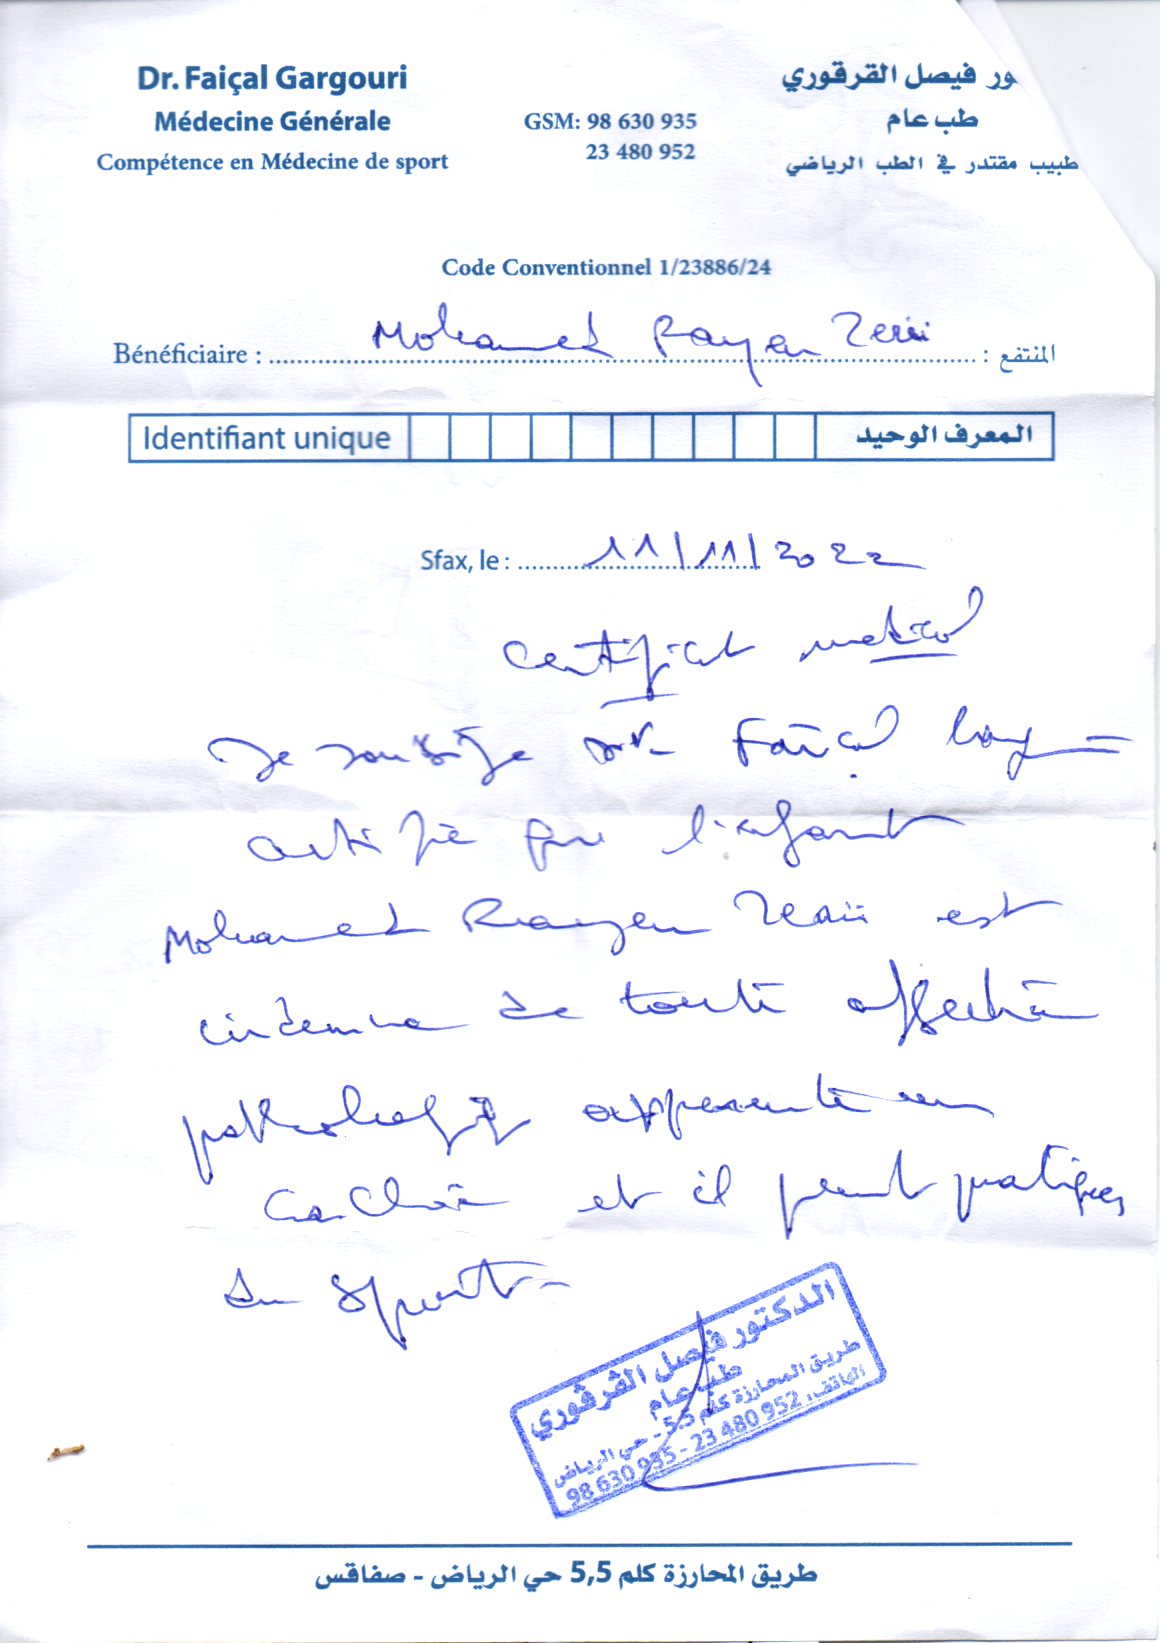 Dr. Faiçal Gargouri
Médecine Générale
Compétence en Médecine de sport
GSM: 98 630 935
23 480 952
ور فيصل القرقوري
طب عام
طبيب مقتدر في الطب الرياضي
Code Conventionnel 1/23886/24
Bénéficiaire : Mohamed Rayen المنتفع :
Identifiant unique المعرف الوحيد
Sfax, le : 11/11/2022
Certificat medical
Je soussigé Dr Faiçal
certifie que l'enfant
Mohamed Rayen est
indemne de toute affection
pathologiq apparente en
et il peut pratiquer
du sport
الدكتور فيصل القرقوري
طب عام
طريق المحارزة كلم 5.5 - حي الرياض
الهاتف: 952 480 23 - 935 630 98
طريق المحارزة كلم 5,5 حي الرياض - صفاقس